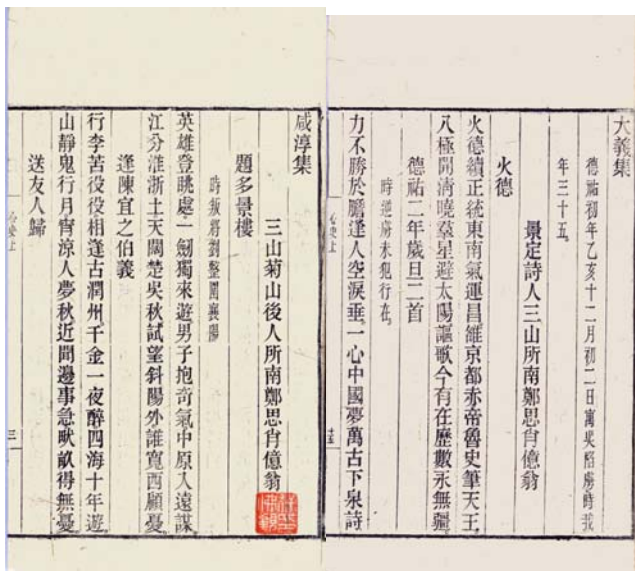 大義集
德祐初年乙亥十二月初二日寓吳陷虜時我
年三十五。
景定詩人三山所南鄭思肖億翁
火德
火德續正統東南氣運昌維京都赤帝魯史筆天王
八極開清曉羣星避太陽謳歌今有在歷數永無疆
德祐二年歲旦二首
時逆虜未犯行在。
力不勝於膽逢人空淚垂一心中國夢萬古下泉詩
心史上
咸淳集
三山菊山後人所南鄭思肖億翁
題多景樓
時叛將劉整圍襄陽
英雄登眺處一劍獨來遊男子抱奇氣中原入遠謀
江分淮浙土天闊楚吳秋試望斜陽外誰寬西顧憂
逢陳宜之伯義
行李苦役役相逢古潤州千金一夜醉四海十年遊
山靜鬼行月宵涼人夢秋近聞邊事急畎畝得無憂
送友人歸
心史上
三